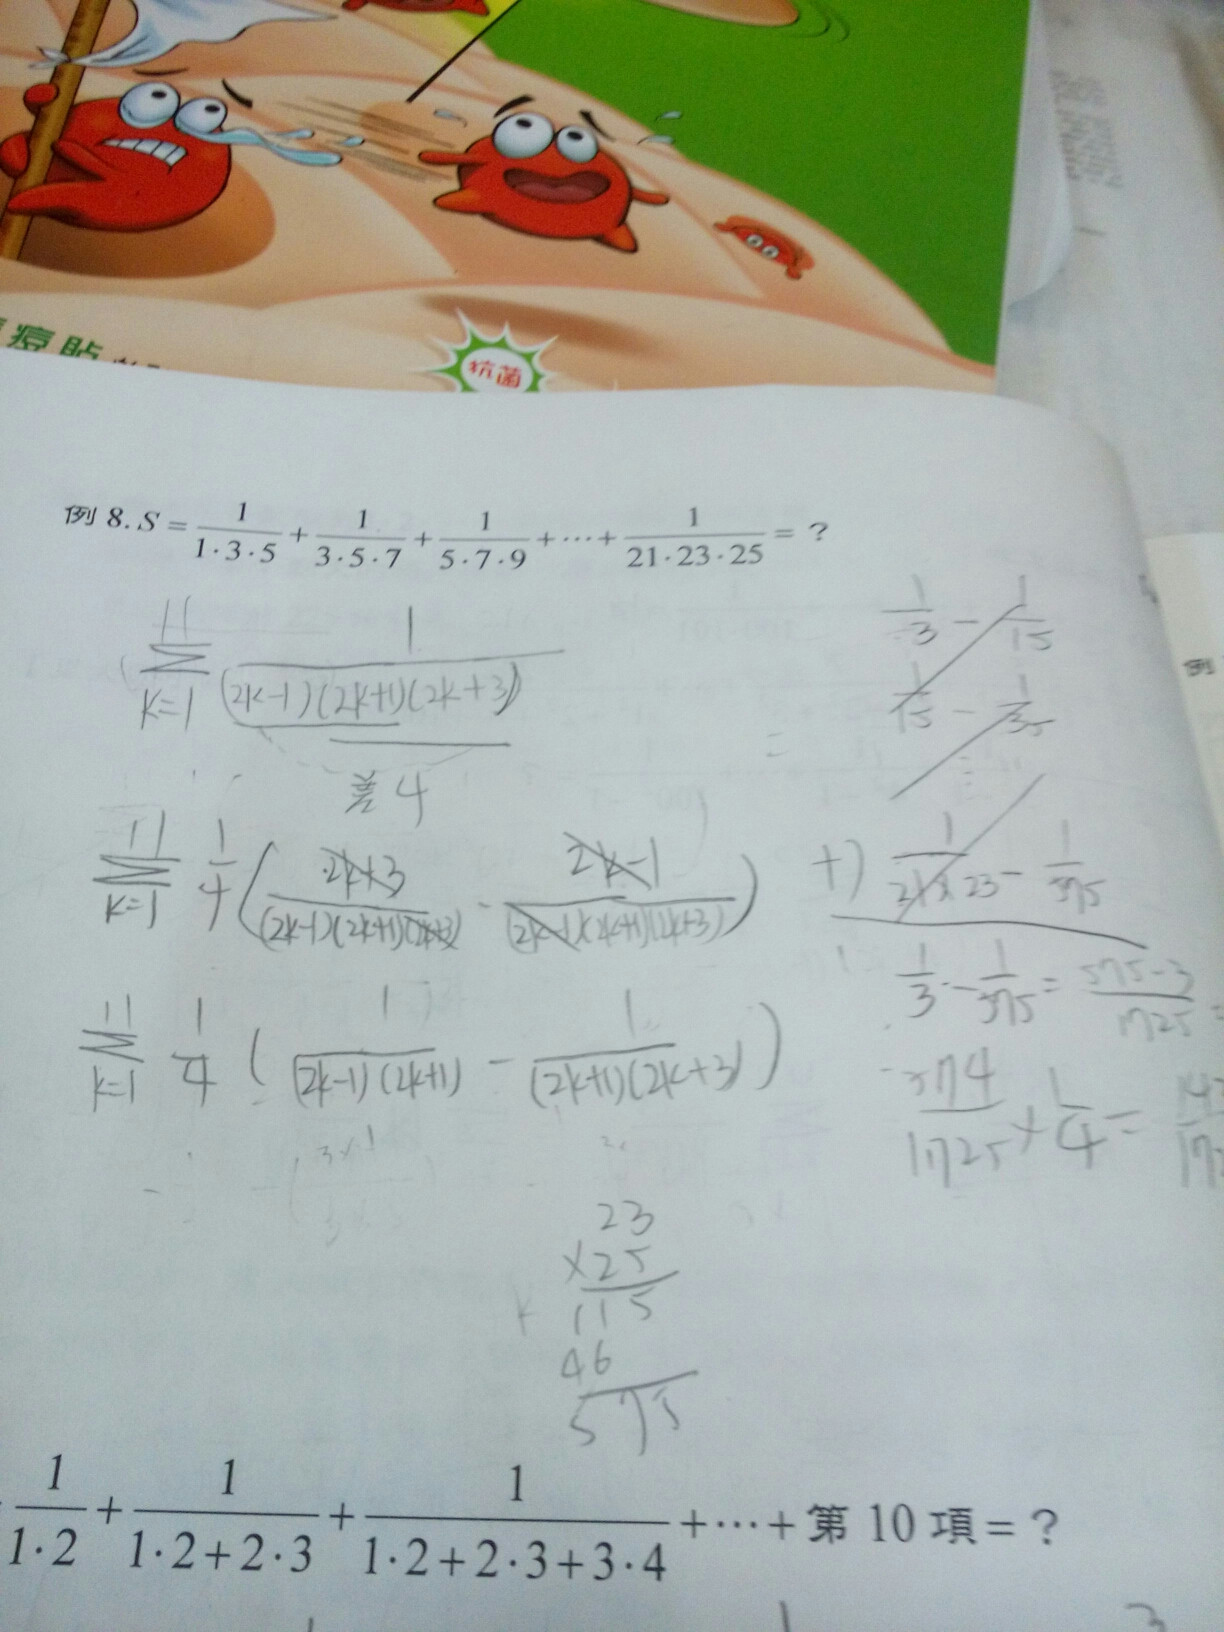 痘貼
抗菌
例 8. S = 1/(1·3·5) + 1/(3·5·7) + 1/(5·7·9) + ⋯ + 1/(21·23·25) = ?
11 Σ k=1 1/((2k-1)(2k+1)(2k+3))
差4
11 Σ k=1 1/4 ( 2k+3/((2k-1)(2k+1)(2k+3)) - 2k-1/((2k-1)(2k+1)(2k+3)) )
11 Σ k=1 1/4 ( 1/((2k-1)(2k+1)) - 1/((2k+1)(2k+3)) )
1/3 - 1/15
1/15 - 1/35
+) 1/(21×23) - 1/575
1/3 - 1/575 = 575-3/1725 =
1725 × 1/4 =
23
×25
115
46
575
例
1/(1·2) + 1/(1·2+2·3) + 1/(1·2+2·3+3·4) + ⋯ + 第 10 項 = ?